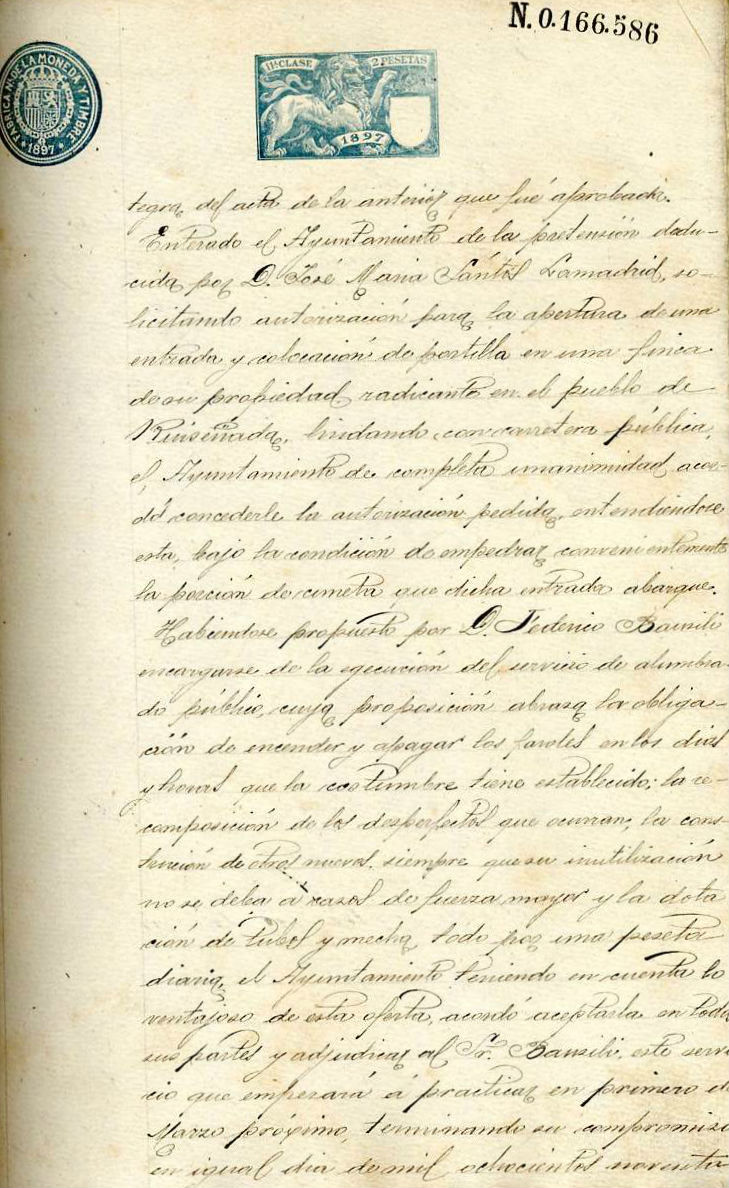 N. 0.166.586
FABRICA N. DE LA MONEDA Y TIMBRE
1897
11ª CLASE 2 PESETAS
1897
tegra del acta de la anterior que fué aprobada.
Enterado el Ayuntamiento de la pretensión dedu-
cida por D. José Maria Sántos Lamadrid, so-
licitando autorización para la apertura de una
entrada y colocación de portilla en una finca
de su propiedad radicante en el pueblo de
Ruiseñada, lindando con carretera pública,
el Ayuntamiento de completa unanimidad acor-
dó concederle la autorización pedida, entendiéndose
esta, bajo la condición de empedrar convenientemente
la porción de cuneta que dicha entrada abarque.
Habiendose propuesto por D. Federico Bausili
encargarse de la egecución del servicio de alumbra-
do público, cuya proposición abraza la obliga-
ción de encender y apagar los faroles en los dias
y horas que la costumbre tiene establecido; la re-
composición de los desperfectos que ocurran, la cons-
trucción de otros nuevos siempre que su inutilización
no se deba á casos de fuerza mayor y la dota
ción de tubos y mecha, todo por una peseta
diaria, el Ayuntamiento teniendo en cuenta lo
ventajoso de esta oferta, acordó aceptarla en todas
sus partes y adjudicar al Sr. Bausili, este servi
cio que empezará á practicar en primero de
Marzo próximo, terminando su compromiso
en igual dia de mil ochocientos noventa